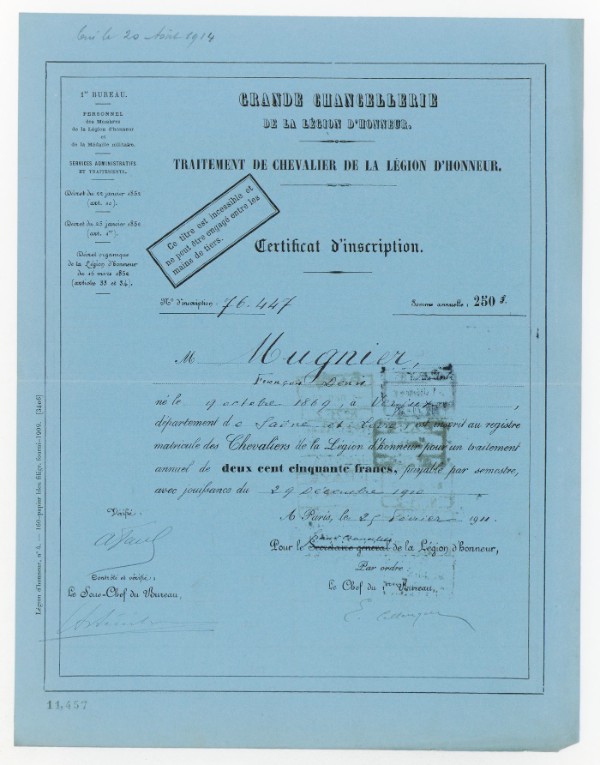 20 Août 1914
1er BUREAU.
PERSONNEL
des Membres
de la Légion d'honneur
et
de la Médaille militaire.
SERVICES ADMINISTRATIFS
ET TRAITEMENTS.
Décret du 22 janvier 1852
(art. 10).
Décret du 25 janvier 1852
(art. 1er).
Décret organique
de la Légion d'honneur
du 16 mars 1852
(articles 33 et 34).
GRANDE CHANCELLERIE
DE LA LÉGION D'HONNEUR.
TRAITEMENT DE CHEVALIER DE LA LÉGION D'HONNEUR.
Ce titre est incessible et
ne peut être engagé entre les
mains de tiers.
Certificat d'inscription.
N° d'inscription : 76.447
Somme annuelle : 250 f.
M Mugnier,
François Denis
né le 9 octobre 1869 à
département de Saône et Loire, est inscrit au registre
matricule des Chevaliers de la Légion d'honneur pour un traitement
annuel de deux cent cinquante francs, payable par semestre,
avec jouissance du 29 Décembre 1910
A Paris, le 25 février 1911.
Vérifié :
Pour le Secrétaire général de la Légion d'honneur,
Par ordre
Contrôlé et vérifié :
Le Sous-Chef du Bureau,
Le Chef du 1er Bureau,
Légion d'honneur, n° 8. — 168-papier bleu
11,457